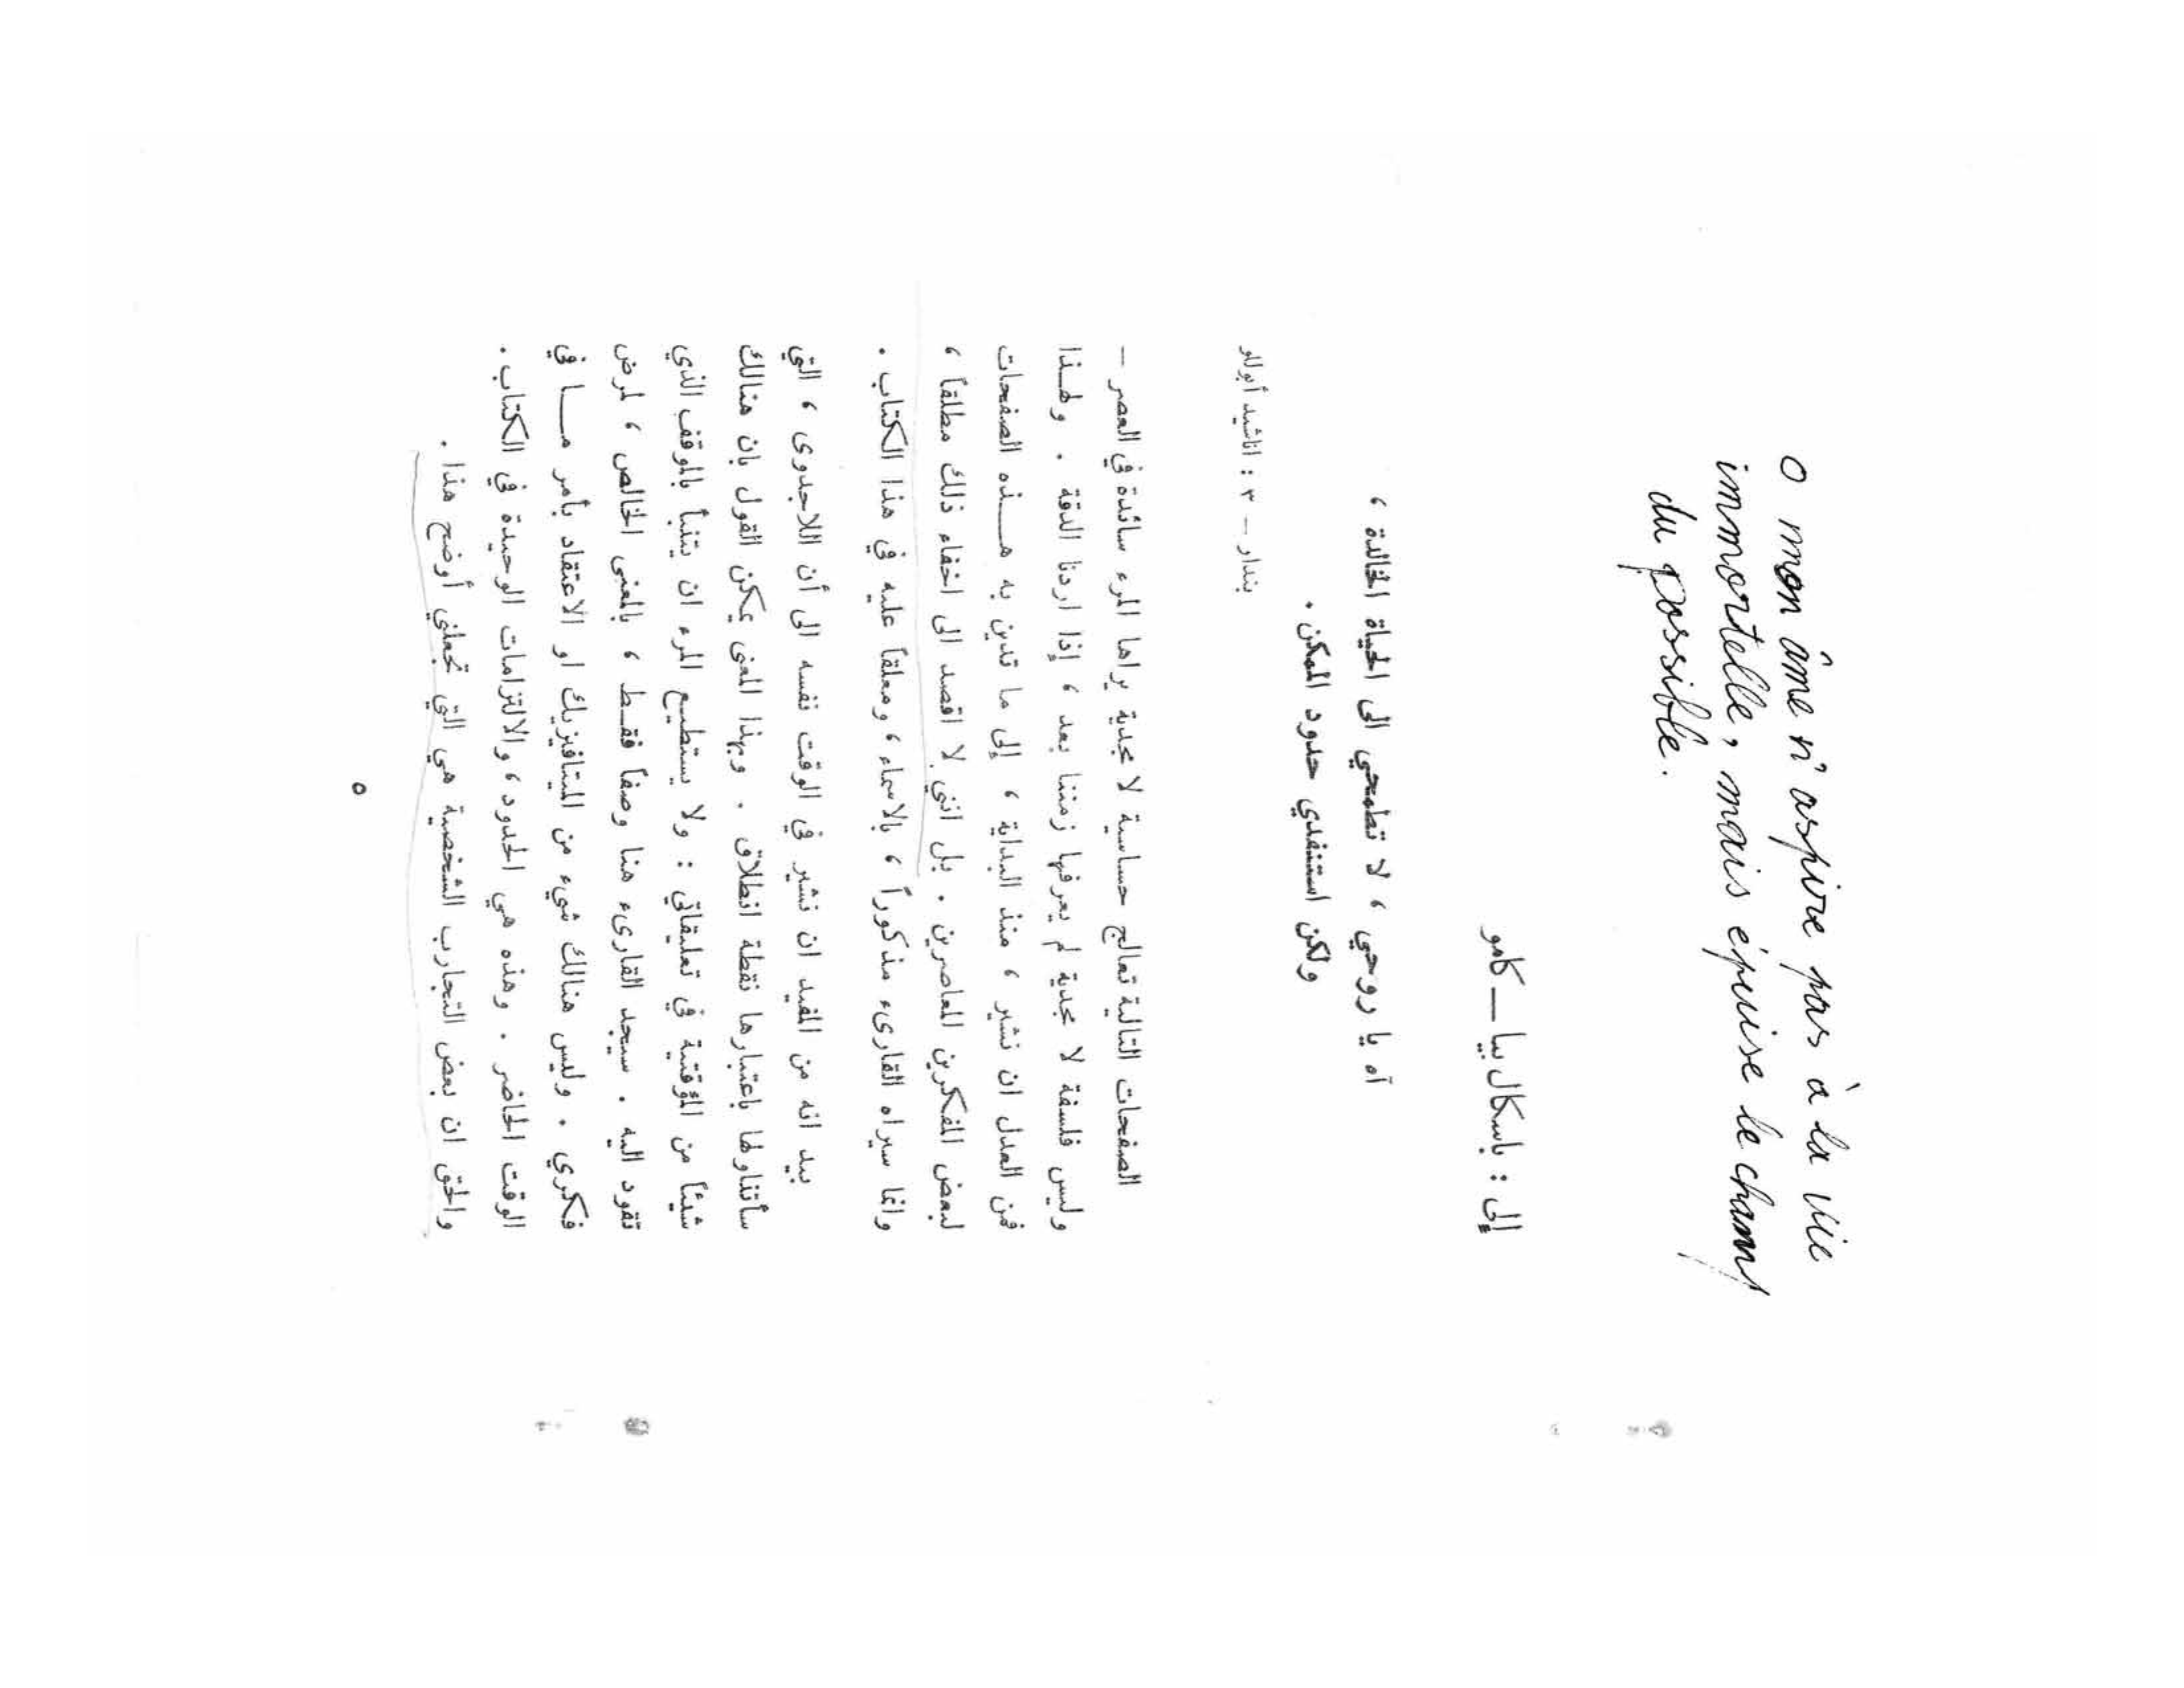 O mon âme n'aspire pas à la vie
immortelle, mais épuise le champ
du possible.
إلى : باسكال بيا — كامو
آه يا روحي ، لا تطمحي الى الحياة الخالدة ،
ولكن استنفدي حدود الممكن .
بندار – ٣ : اناشيد أبوللو
الصفحات التالية تعالج حساسية لا مجدية يراها المرء سائدة في العصر –
وليس فلسفة لا مجدية لم يعرفها زمننا بعد ، إذا اردنا الدقة . ولهذا
فمن العدل ان نشير ، منذ البداية ، إلى ما تدين به هـذه الصفحات
لبعض المفكرين المعاصرين . بل انني لا اقصد الى اخفاء ذلك مطلقاً ،
وانما سيراه القارىء مذكوراً ، بالاسماء ، ومعلقاً عليه في هذا الكتاب .
بيد انه من المفيد ان نشير في الوقت نفسه الى أن اللاجدوى ، التي
سأتناولها باعتبارها نقطة انطلاق . وبهذا المعنى يمكن القول بان هنالك
شيئاً من المؤقتية في تعليقاتي : ولا يستطيع المرء ان يتنبأ بالموقف الذي
تقود اليه . سيجد القارىء هنا وصفاً فقط ، بالمعنى الخالص ، لمرض
فكري . وليس هنالك شيء من الميتافيزيك او الاعتقاد بأمر مـا في
الوقت الحاضر . وهذه هي الحدود ، والالتزامات الوحيدة في الكتاب .
والحق ان بعض التجارب الشخصية هي التي تجعلني أوضح هذا .
٥